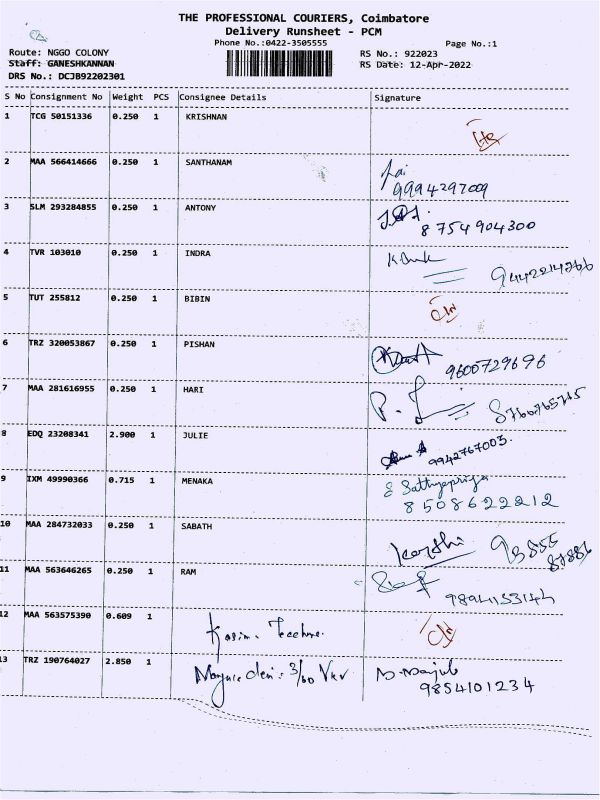 THE PROFESSIONAL COURIERS, Coimbatore
Delivery Runsheet - PCM
Phone No.:0422-3505555 Page No.:1
Route: NGGO COLONY RS No.: 922023
Staff: GANESHKANNAN RS Date: 12-Apr-2022
DRS No.: DCJB92202301
S No Consignment No Weight PCS Consignee Details Signature
1 TCG 50151336 0.250 1 KRISHNAN
2 MAA 566414666 0.250 1 SANTHANAM
9994297009
3 SLM 293284855 0.250 1 ANTONY
8754904300
4 TVR 103010 0.250 1 INDRA
5 TUT 255812 0.250 1 BIBIN
6 TRZ 320053867 0.250 1 PISHAN
9600729696
7 MAA 281616955 0.250 1 HARI
8 EDQ 23208341 2.900 1 JULIE
9942767003.
9 IXM 49990366 0.715 1 MENAKA
Sathyapriya
8508622212
10 MAA 284732033 0.250 1 SABATH
11 MAA 563646265 0.250 1 RAM
12 MAA 563575390 0.609 1
13 TRZ 190764027 2.850 1
9854101234